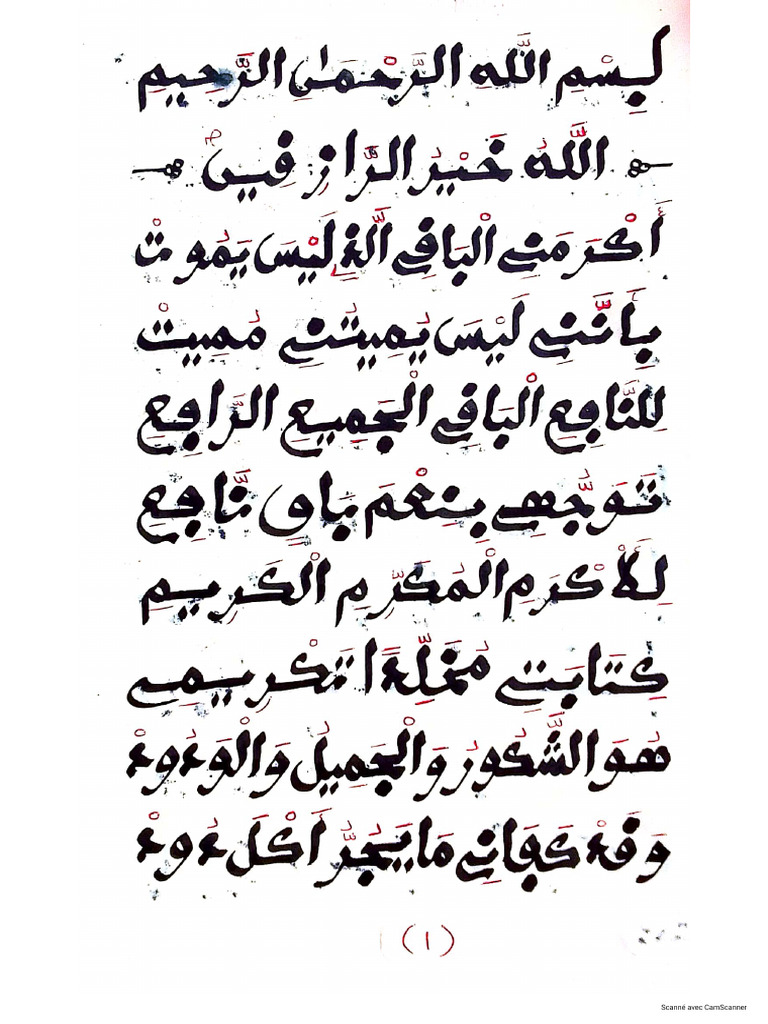 بِسْمِ اللَّهِ الرَّحْمَٰنِ الرَّحِيمِ
اللَّهُ خَيْرُ الرَّازِقِينَ
أَكْرَمَنِي الْبَاقِي الَّذِي لَيْسَ يَمُوتْ
بِأَنَّنِي لَيْسَ يُمِيتُنِي مُمِيتْ
لِلنَّافِعِ الْبَاقِي الْجَمِيعِ الرَّافِعِ
تَوَجُّهِي بِنِعْمَ بَاقٍ نَّافِعِ
لِلْأَكْرَمِ الْمُكَرِّمِ الْكَرِيمِ
كِتَابَتِي مُخَلِّدًا تَكْرِيمِي
هُوَ الشَّكُورُ وَالْجَمِيلُ وَالْوَدُودْ
وَقَدْ كَفَانِي مَا يَجُرُّ أَكْلَ دُودْ
(١)
Scanné avec CamScanner